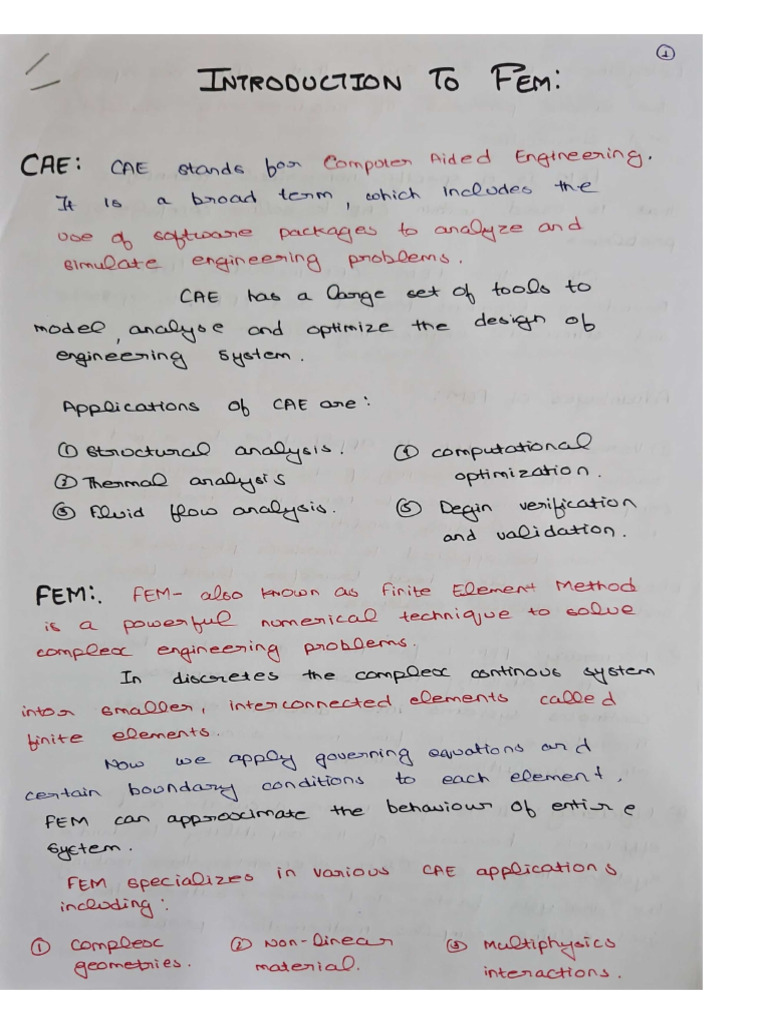 ①
INTRODUCTION TO FEM:
CAE: CAE stands for Computer Aided Engineering.
It is a broad term, which includes the
use of software packages to analyze and
simulate engineering problems.
CAE has a large set of tools to
model, analyse and optimize the design of
engineering system.
Applications of CAE are:
① structural analysis. ④ computational
optimization.
② Thermal analysis
③ Fluid flow analysis. ⑤ Degin verification
and validation.
FEM:. FEM- also known as Finite Element Method
is a powerful numerical technique to solve
complex engineering problems.
In discretes the complex continous system
intor smaller, interconnected elements called
finite elements.
Now we apply governing equations and
certain boundary conditions to each element,
FEM can approximate the behaviour of entire
system.
FEM specializes in various CAE applications
including:
① complex ② Non-linear ③ multiphysics
geometries. material. interactions.